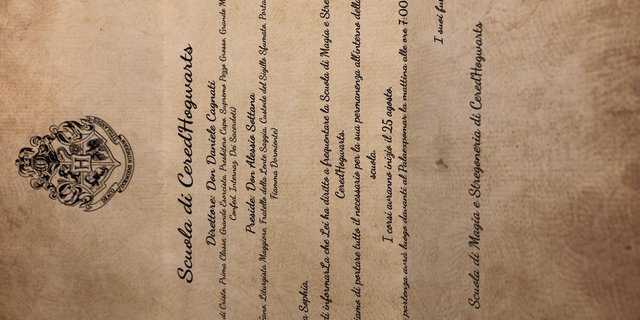 Scuola di CeredHogwarts
Direttore: Don Daniele Cagnati
di Orido, Prima Classe, Grande Presbitero Capo, Supremo Pezzo Grosso, Grande
Confed. Internaz. Dei Sacerdoti)
Preside: Don Alessio Sottana
Liturgista Maggiore, Fratello della Lente Saggia, Custode del Sigillo Sfumato,
Fiamma Dormiente)
Sophia,
di informarLa che Lei ha diritto a frequentare la Scuola di Magia e
CeredHogwarts.
di portare tutto il necessario per la sua permanenza all'interno della
scuola.
I corsi avranno inizio il 25 agosto.
partenza avrà luogo davanti al Palaexpomar la mattina alle ore 7:00
I suoi
Scuola di Magia e Stregoneria di CeredHogwarts